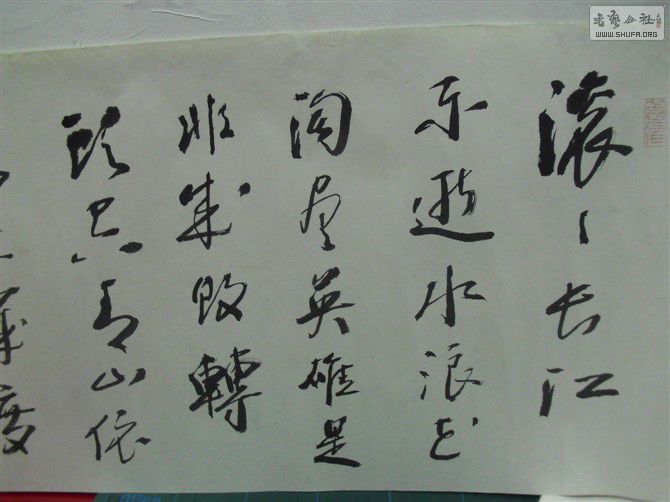 滚〻长江
东逝水浪花
淘尽英雄是
非成败轉
头空青山依
几度
书艺公社
WWW.SHUFA.ORG